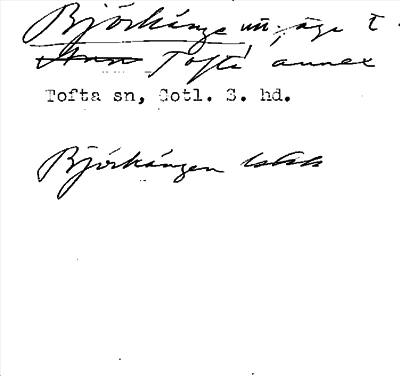 Björkänge un. äga t.
Tofta annex
Tofta sn, Gotl. S. hd.
Björkängen